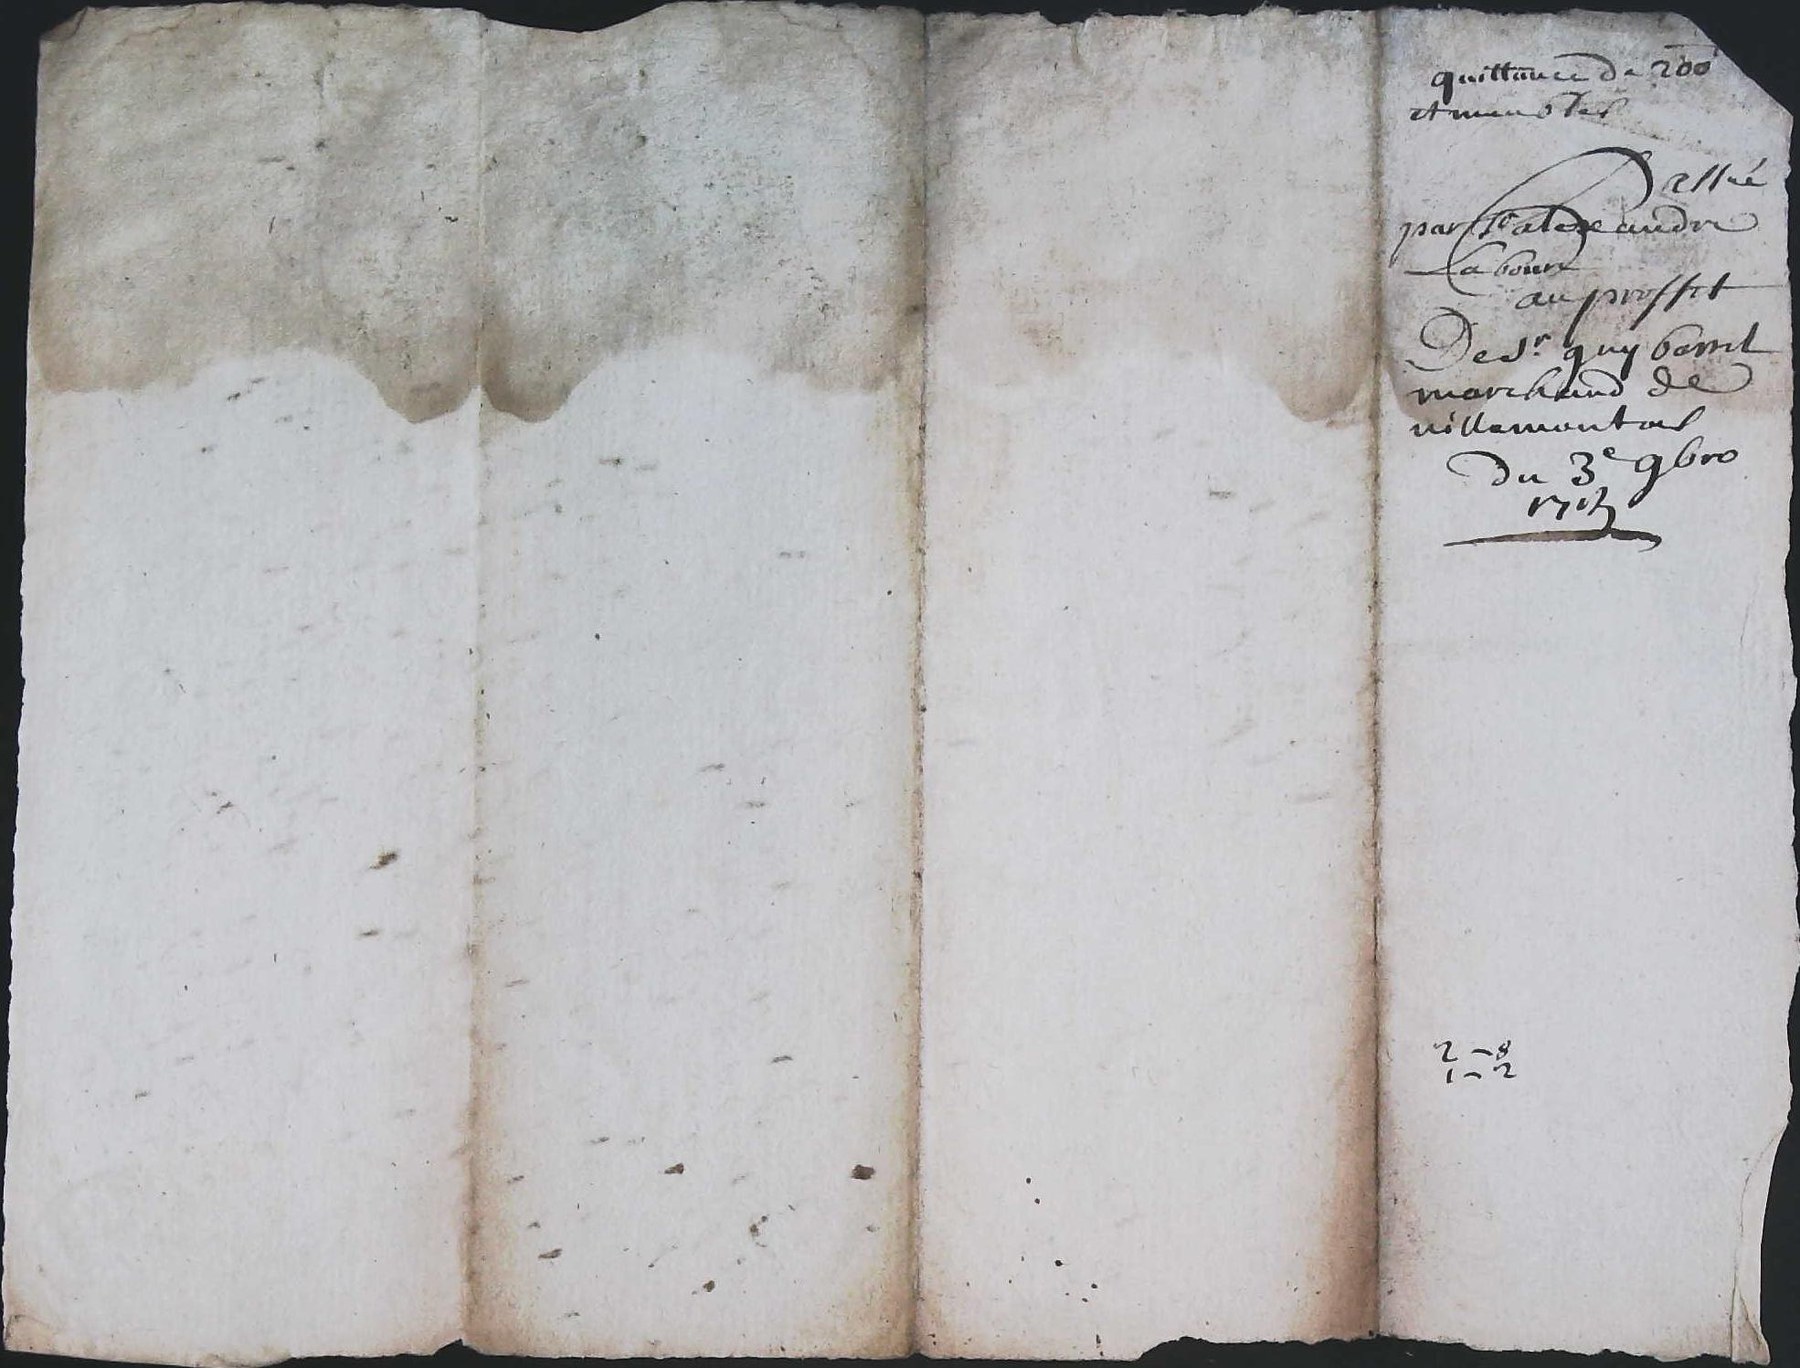 quittance de 200
et meubles
Passée
par Sr alexandre
Laboure
au proffit
De Sr guy barret
marchand de
villemontois
du 3e 9bre
2 - 8
1 - 2